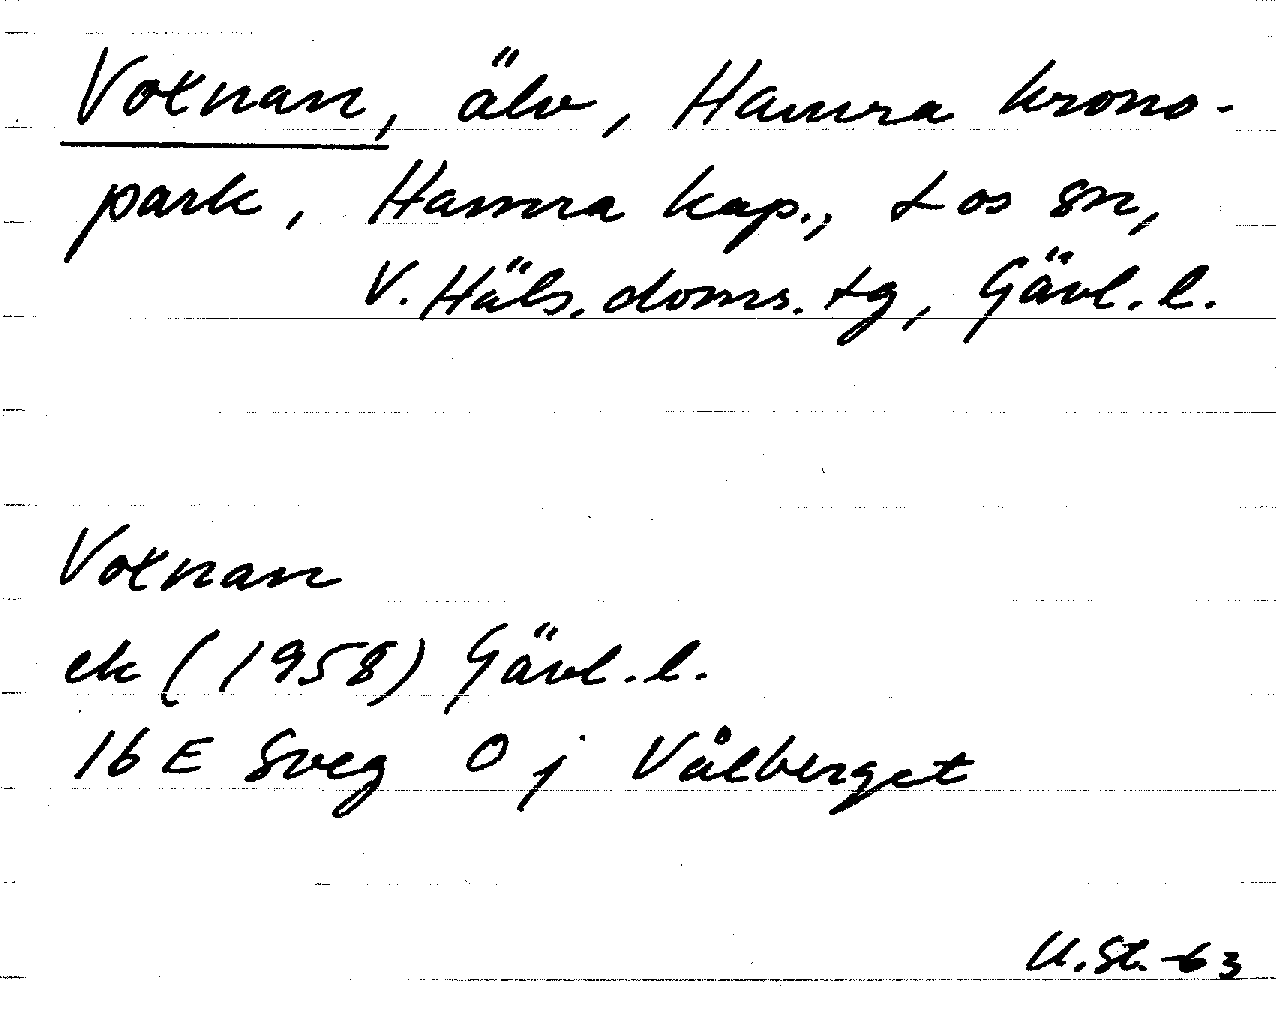 Voxnan, älv, Hamra krono-
park, Hamra kap., Los sn,
V. Häls. doms. tg, Gävl. l.
Voxnan
ek (1958) Gävl. l.
16 E Sveg O j Vålberget
U. St. -63